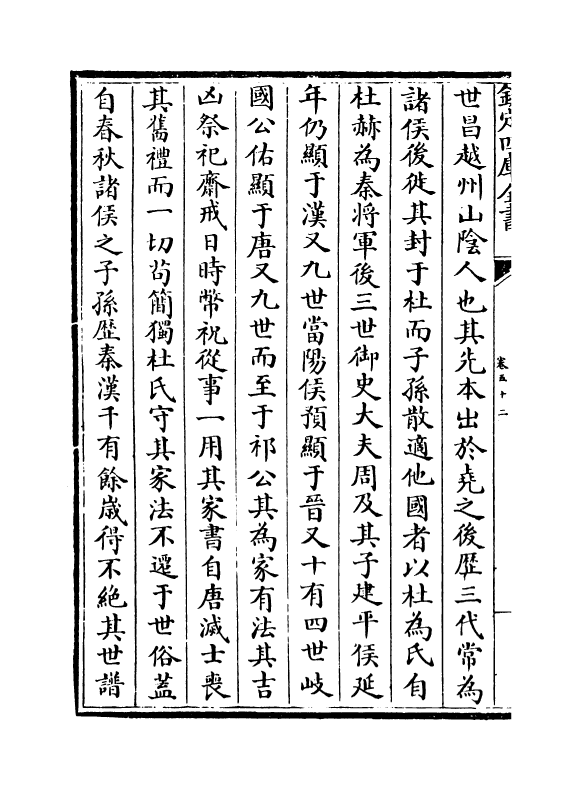 欽定四庫全書
卷五十二
世昌越州山陰人也其先本出於堯之後歴三代常為
諸侯後徙其封于杜而子孫散適他國者以杜為氏自
杜赫為秦将軍後三世御史大夫周及其子建平侯延
年仍顯于漢又九世當陽侯預顯于晉又十有四世岐
國公佑顯于唐又九世而至于祁公其為家有法其吉
凶祭祀齋戒日時幣祝從事一用其家書自唐滅士喪
其舊禮而一切茍簡獨杜氏守其家法不遷于世俗蓋
自春秋諸侯之子孫歴秦漢千有餘嵗得不絶其世譜